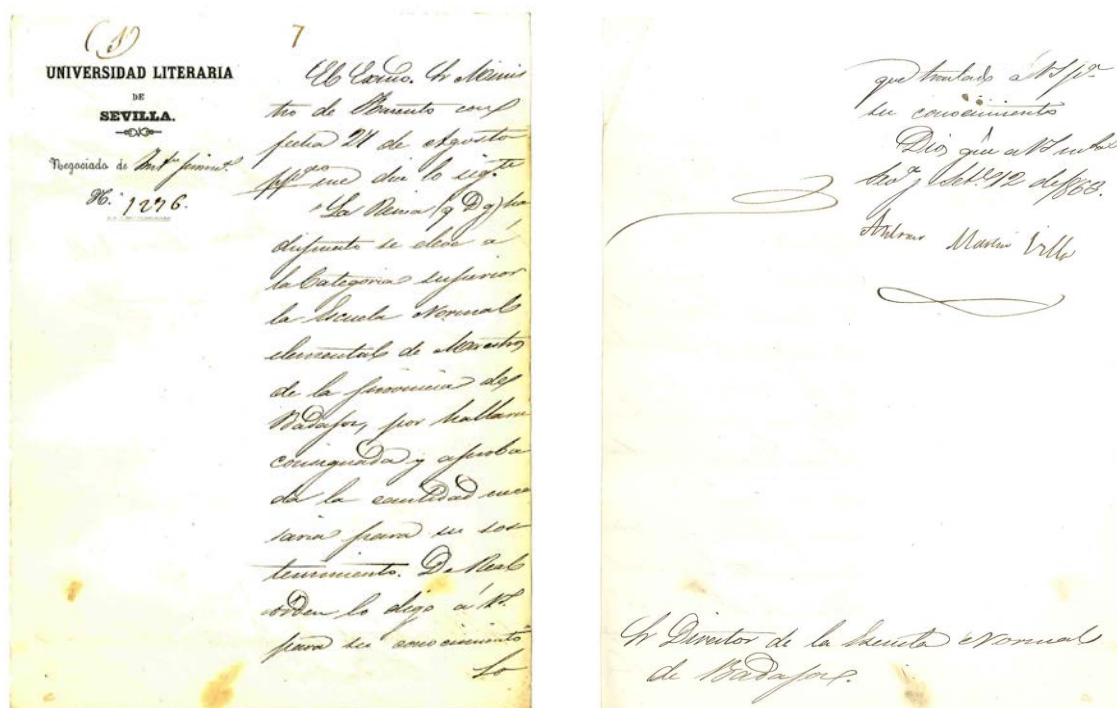 (1)
7
UNIVERSIDAD LITERARIA
DE
SEVILLA.
Negociado de
N. 1276.
El Excmo. Sr Minis
tro de Fomento con
fecha 24 de Agosto
me dice lo sig.te
La Reina (q D g) ha
dispuesto se eleve á
la Categoria superior
la Escuela Normal
elemental de Maestros
de la provincia de
Badajoz, por hallarse
consignada y aproba
da la cantidad nece
saria para su sos
tenimiento. De Real
orden lo digo á V.
para su conocimiento
Lo
que traslado á V S p.a
su conocimiento
Dios gue a V S m.s a.s
Set.e 12 de 1863.
Antonio Martin Villa
Sr Director de la Escuela Normal
de Badajoz.